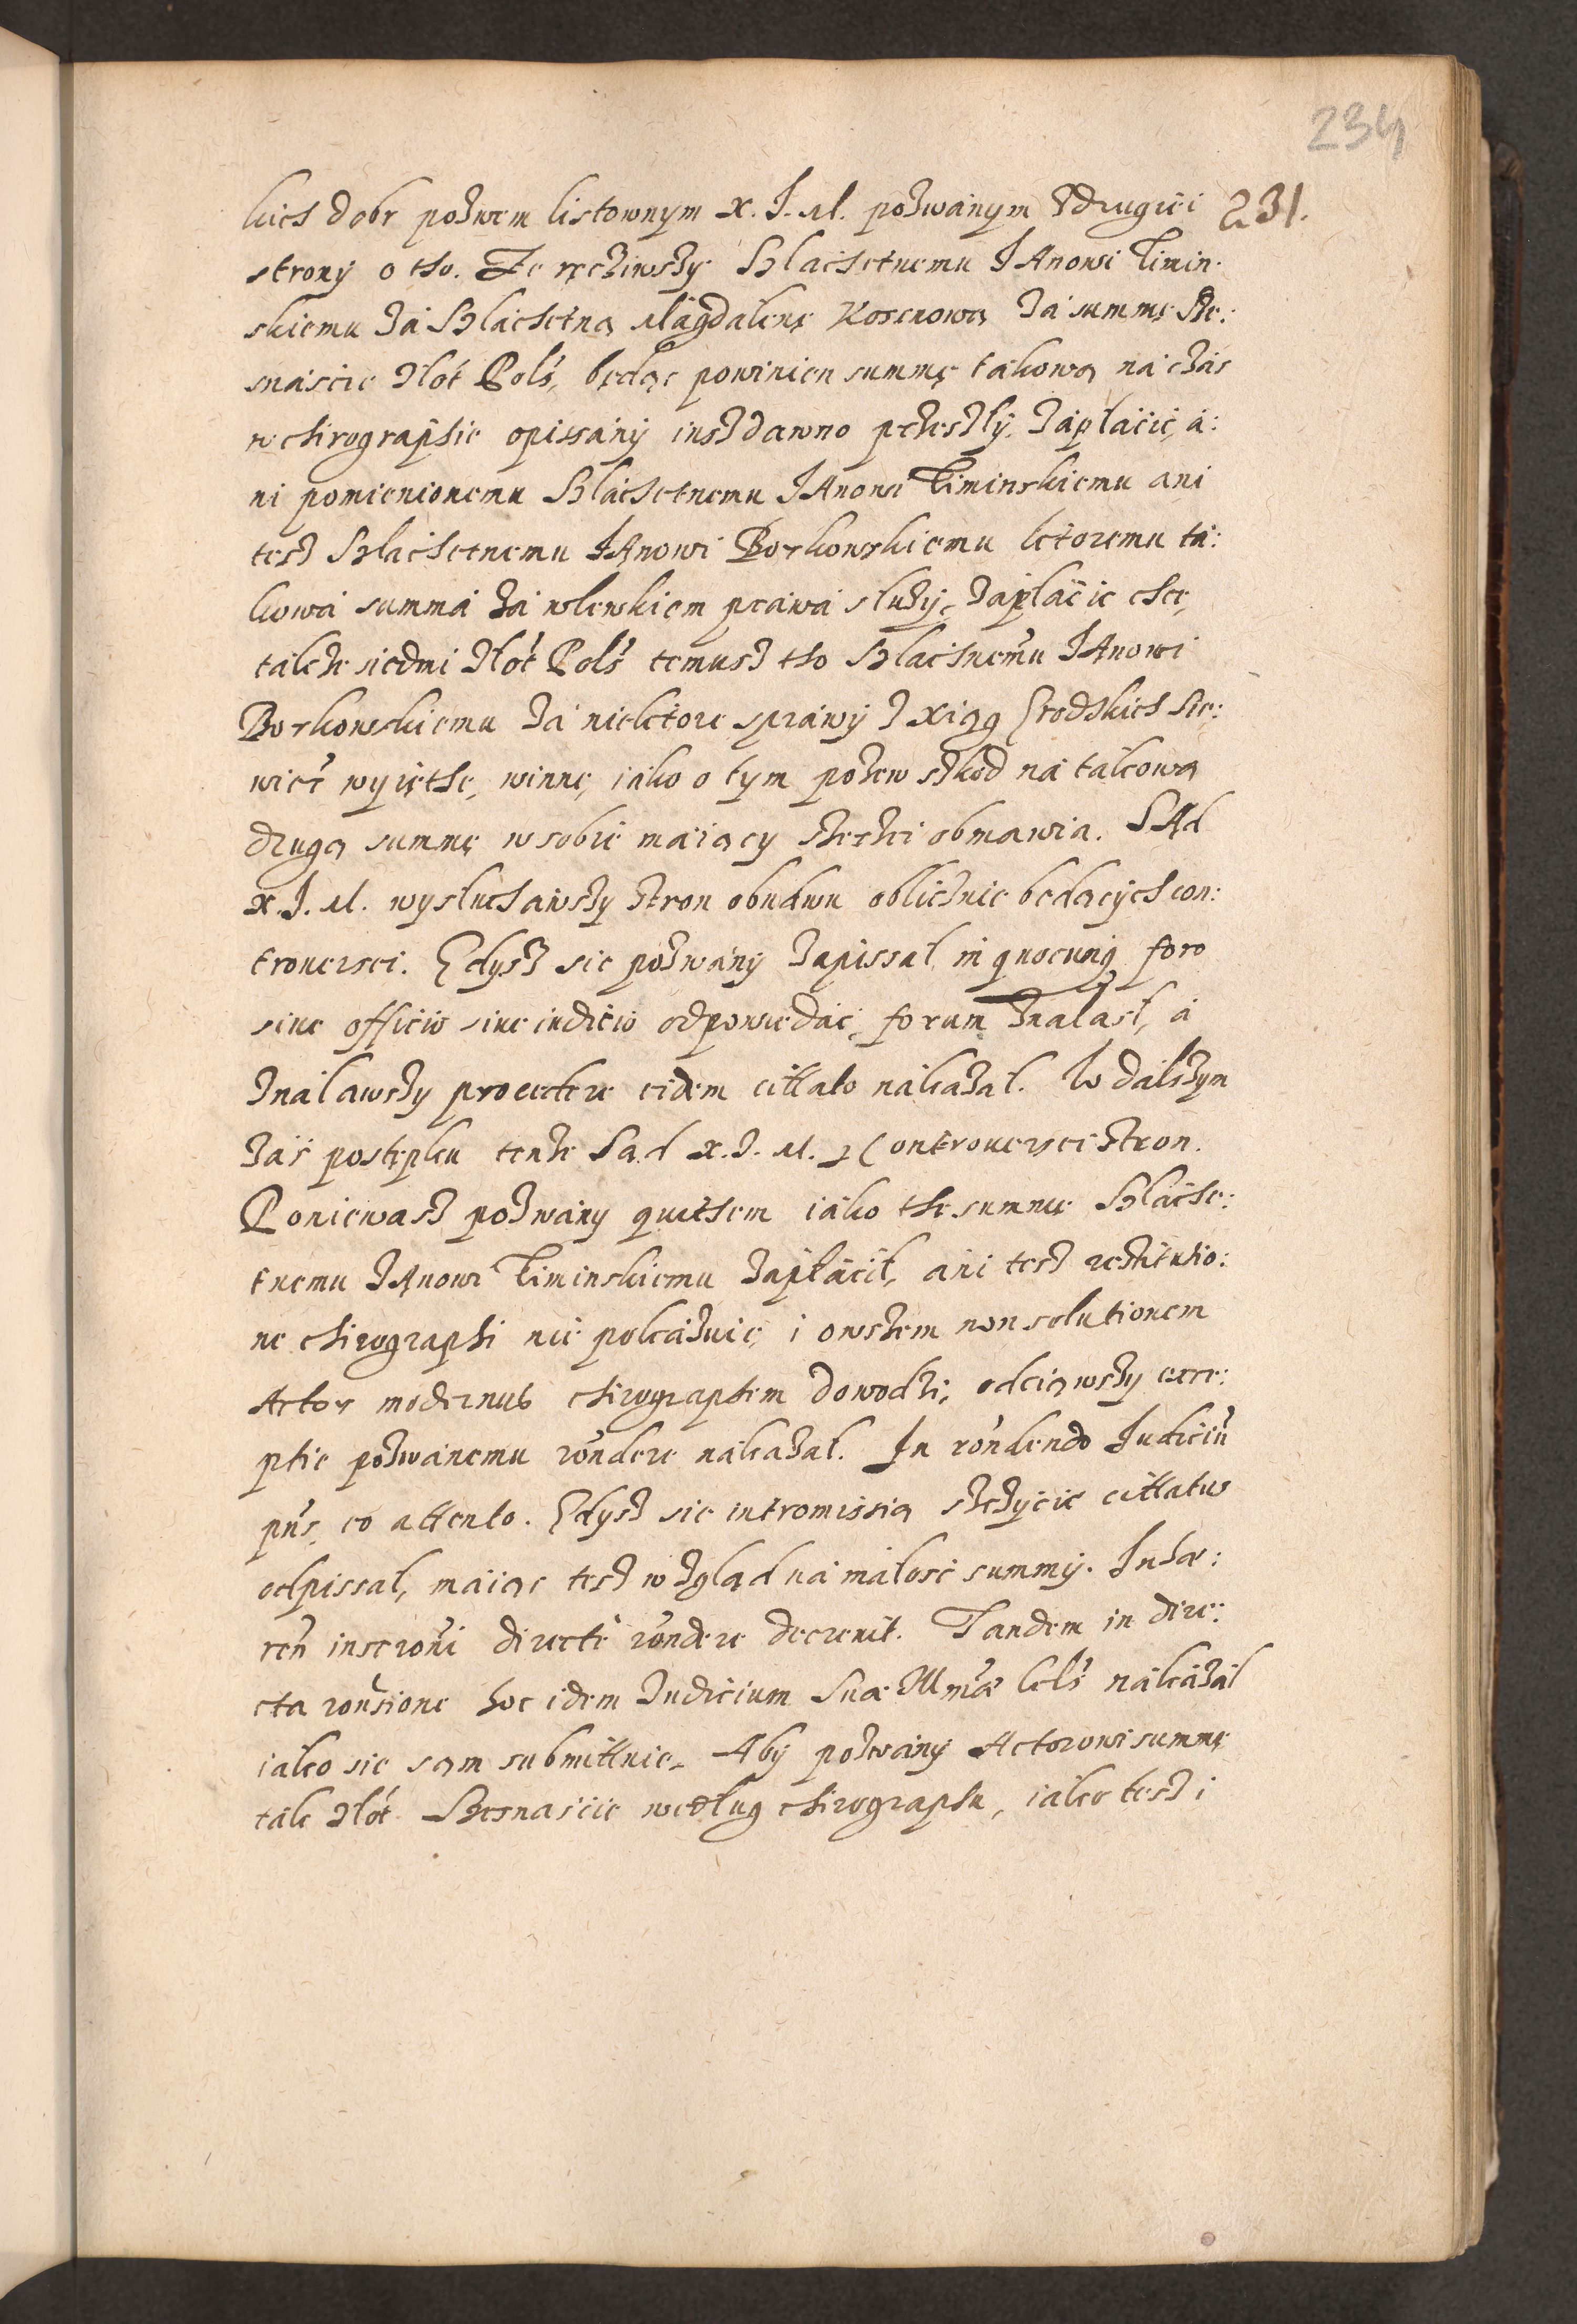 234
kich dobr pozwem listownym X. J. M. pozwánym z drugiei 231.
strony o tho. Ze ręcziwszy Szláchetnemu JAnowi Timin:
skiemu zá Szláchetną Mágdálenę Kosenową zá summę sze:
snáście Złót Polś, będąc powinien summę tákową ná czás
w chirographie opissány iusz dawno przeszły, zápłácić, á:
ni pomienionemu Szláchetnemu JAnowi Timinskiemu ani
tesz Szláchetnemu JAnowi Borkowskiemu ktoremu tá:
kowá summá zá wlewkiem prawá służy, zápłácić chce,
tákże siedmi Złót Polś temusz tho Szláchnemu JAnowi
Borkowskiemu zá niektore sprawy z Xiąg Grodskich Sie:
wier wyięthe, winne, iáko o tym pozew szkod ná tákową
drugą summę w sobie máiący szerzei obmawia. SAd
X. J. M. wysłuchawszy stron obudwu oblicznie będących con:
trouersei. Gdysz sie pozwány zápissał in quocunq foro
siue officio siue iudicio odpowiedáć, forum ználasł, á
ználawszy procedere eidem cittato nákazał. W dálszym
záś postępku tenże Sąd X. J. M. z Controuersei stron.
Poniewasz pozwány quithem iáko the summę Szláche:
tnemu JAnowi Timinskiemu zápłácił, ani tesz restitutio:
ne chirographi nie pokázuie, i owszem non solutionem
Actor modernus chirographem dowodzi, odciąwszy exce:
ptie pozwánemu rondere nákazał. In rondendo Judiciu
pns, eo attento. Gdysz sie intromissią szczycić cittatus
odpissał, máiąc tesz wzgląd ná máłość summy. Inhæ:
ren inscroni directè rondere decreuit. Tandem in dire:
cta ronsione hoc idem Judicium Suæ Illmæ Cels nákázał
iáko sie sąm submittuie. Aby pozwány Actorowi summę
ták Złót Szesnaście według chirographu, iáko tesz i